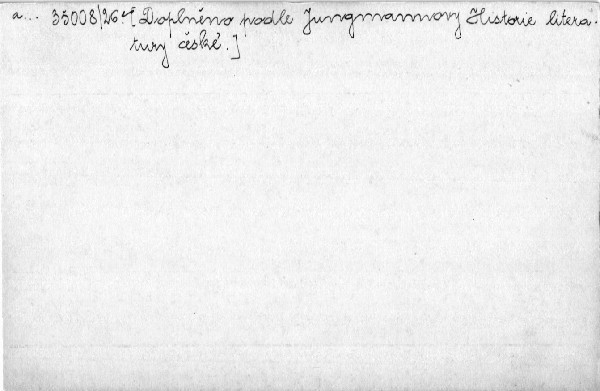 a... 35008/26. [Doplněno podle Jungmannovy Historie litera-
tury české.]